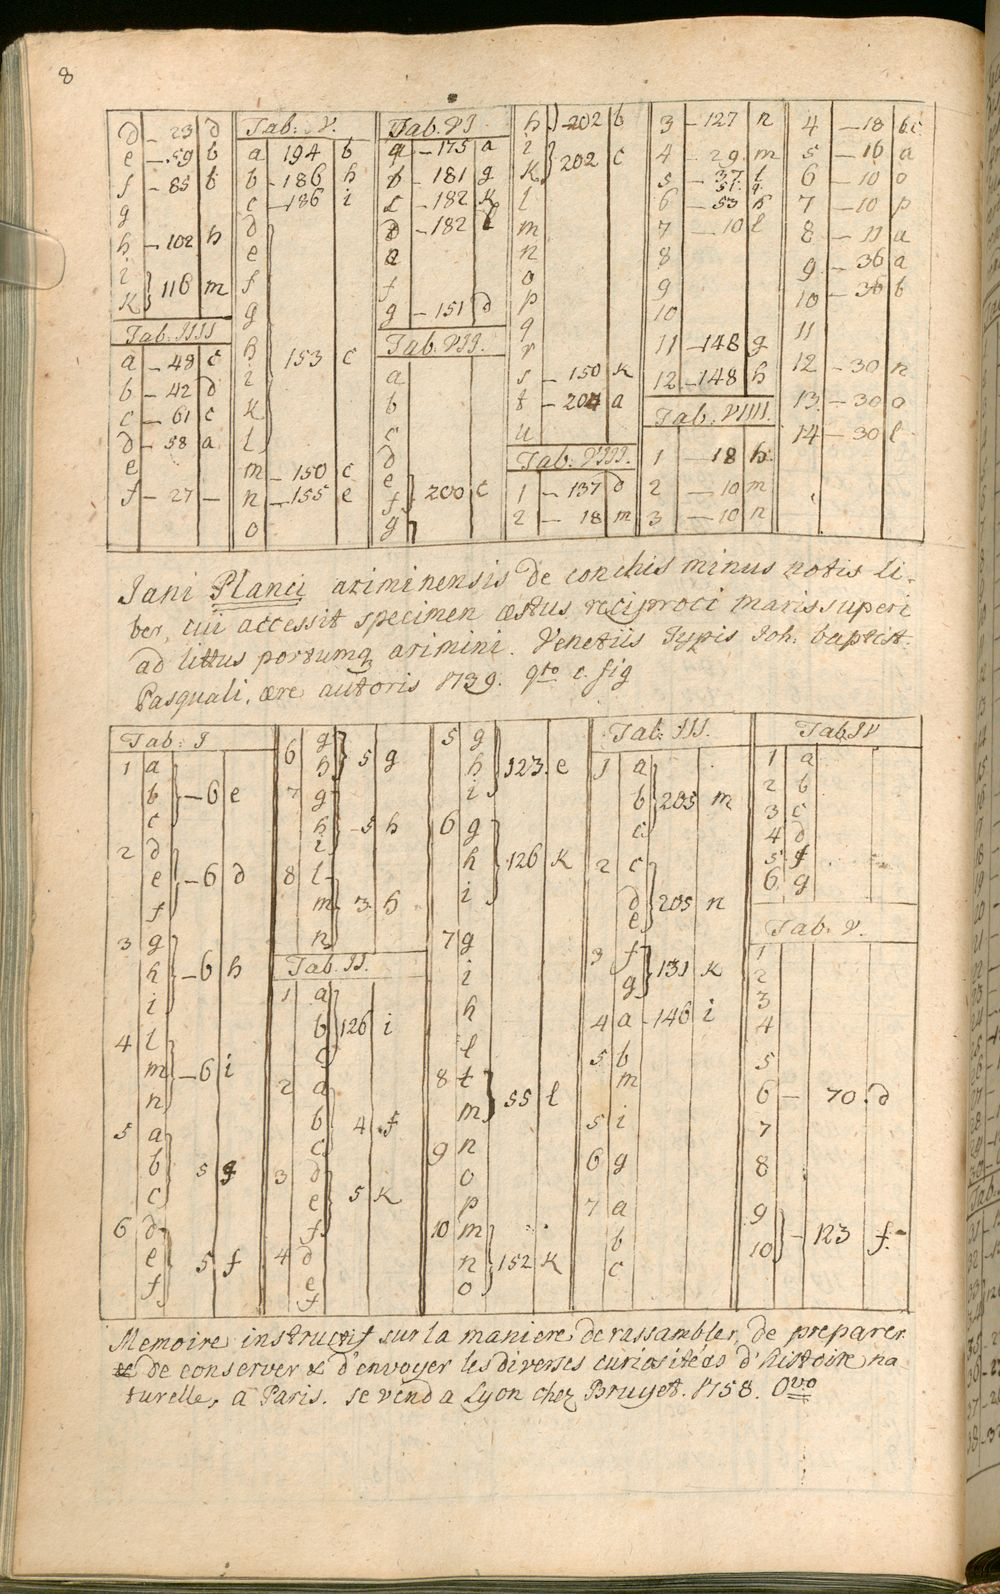 8
d – 23 d
e – 59 b
f – 85 b
g
h – 102 h
i
k } 116 m
Tab. IIII
a – 48 c
b – 42 d
c – 61 c
d – 58 a
e
f – 27 –
Tab: V.
a 194 b
b – 186 h
c – 186 i
d
e
f
g
h 153 c
i
k
l
m – 150 c
n – 155 e
o
Tab. VI
a – 175 a
b – 181 g
c – 182 k
d – 182 l
e
f
g – 151 d
Tab. VII.
a
b
c
d
e
f } 200 c
g
h } 202 b
i
k } 202 c
l
m
n
o
p
q
r
s – 150 k
t – 204 a
u
Tab: VIII.
1 – 137 d
2 – 18 m
3 – 127 n
4 – 29. m
5 – 37 l
51. q.
6 – 53 h
7 – 10 l
8
9
10
11 – 148 g
12 – 148 h
Tab: VIIII.
1 – 18 h
2 – 10 m
3 – 10 n
4 – 18 b.c.
5 – 16 a
6 – 10 o
7 – 10 p
8 – 11 a
9 – 36 a
10 – 36 b
11
12 – 30 n
13. – 30 o
14 – 30 l
Jani Planci ariminensis de conchis minus notis li-
ber, cui accessit specimen æstus reciproci maris superi
ad littus portumq arimini. Venetiis Typis Joh: baptist.
Pasquali, ære autoris 1739. 4to c. fig
Tab: I
1 a
b } – 6 e
c
2 d
e } – 6 d
f
3 g
h } – 6 h
i
4 l
m } – 6 i
n
5 a
b } 5 g
c
6 d
e } 5 f
f
6 g
h } 5 g
7 g
h } – 5 h
i
8 l
m } 3 h
n
Tab. II.
1 a
b } 126 i
c
2 a
b 4 f
c
3 d
e 5 k
f
4 d
e
f
5 g
h } 123. e
i
6 g
h } 126 k
i
7 g
i
h
l
8 t
m } 55 l
9 n
o
p
10 m
n } 152 k
o
Tab: III.
1 a
b } 205 m
c
2 c
d } 205 n
e
3 f
g } 131 k
4 a – 146 i
5 b
m
5 i
6 g
7 a
b
c
Tab IV
1 a
2 b
3 c
4 d
5 f
6 g
Tab. V.
1
2
3
4
5
6 – 70. d
7
8
9
10 } – 123 f. –
Memoire instructif sur la maniere de rassambler, de preparer
& de conserver & d'envoyer les diverses curiositées d'histoire na
turelle, a Paris. se vend a Lyon chez Bruyet. 1758. 8vo